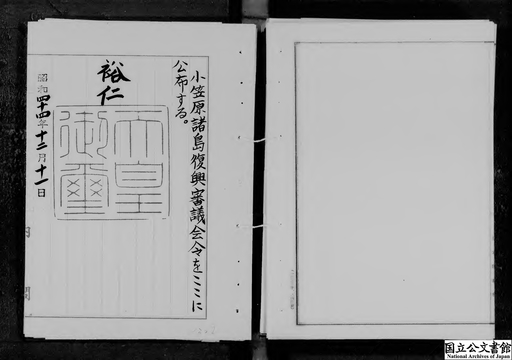 小笠原諸島復興審議会令をここに
公布する。
裕仁
天皇
御璽
昭和四十四年十二月十一日
国立公文書館
National Archives of Japan